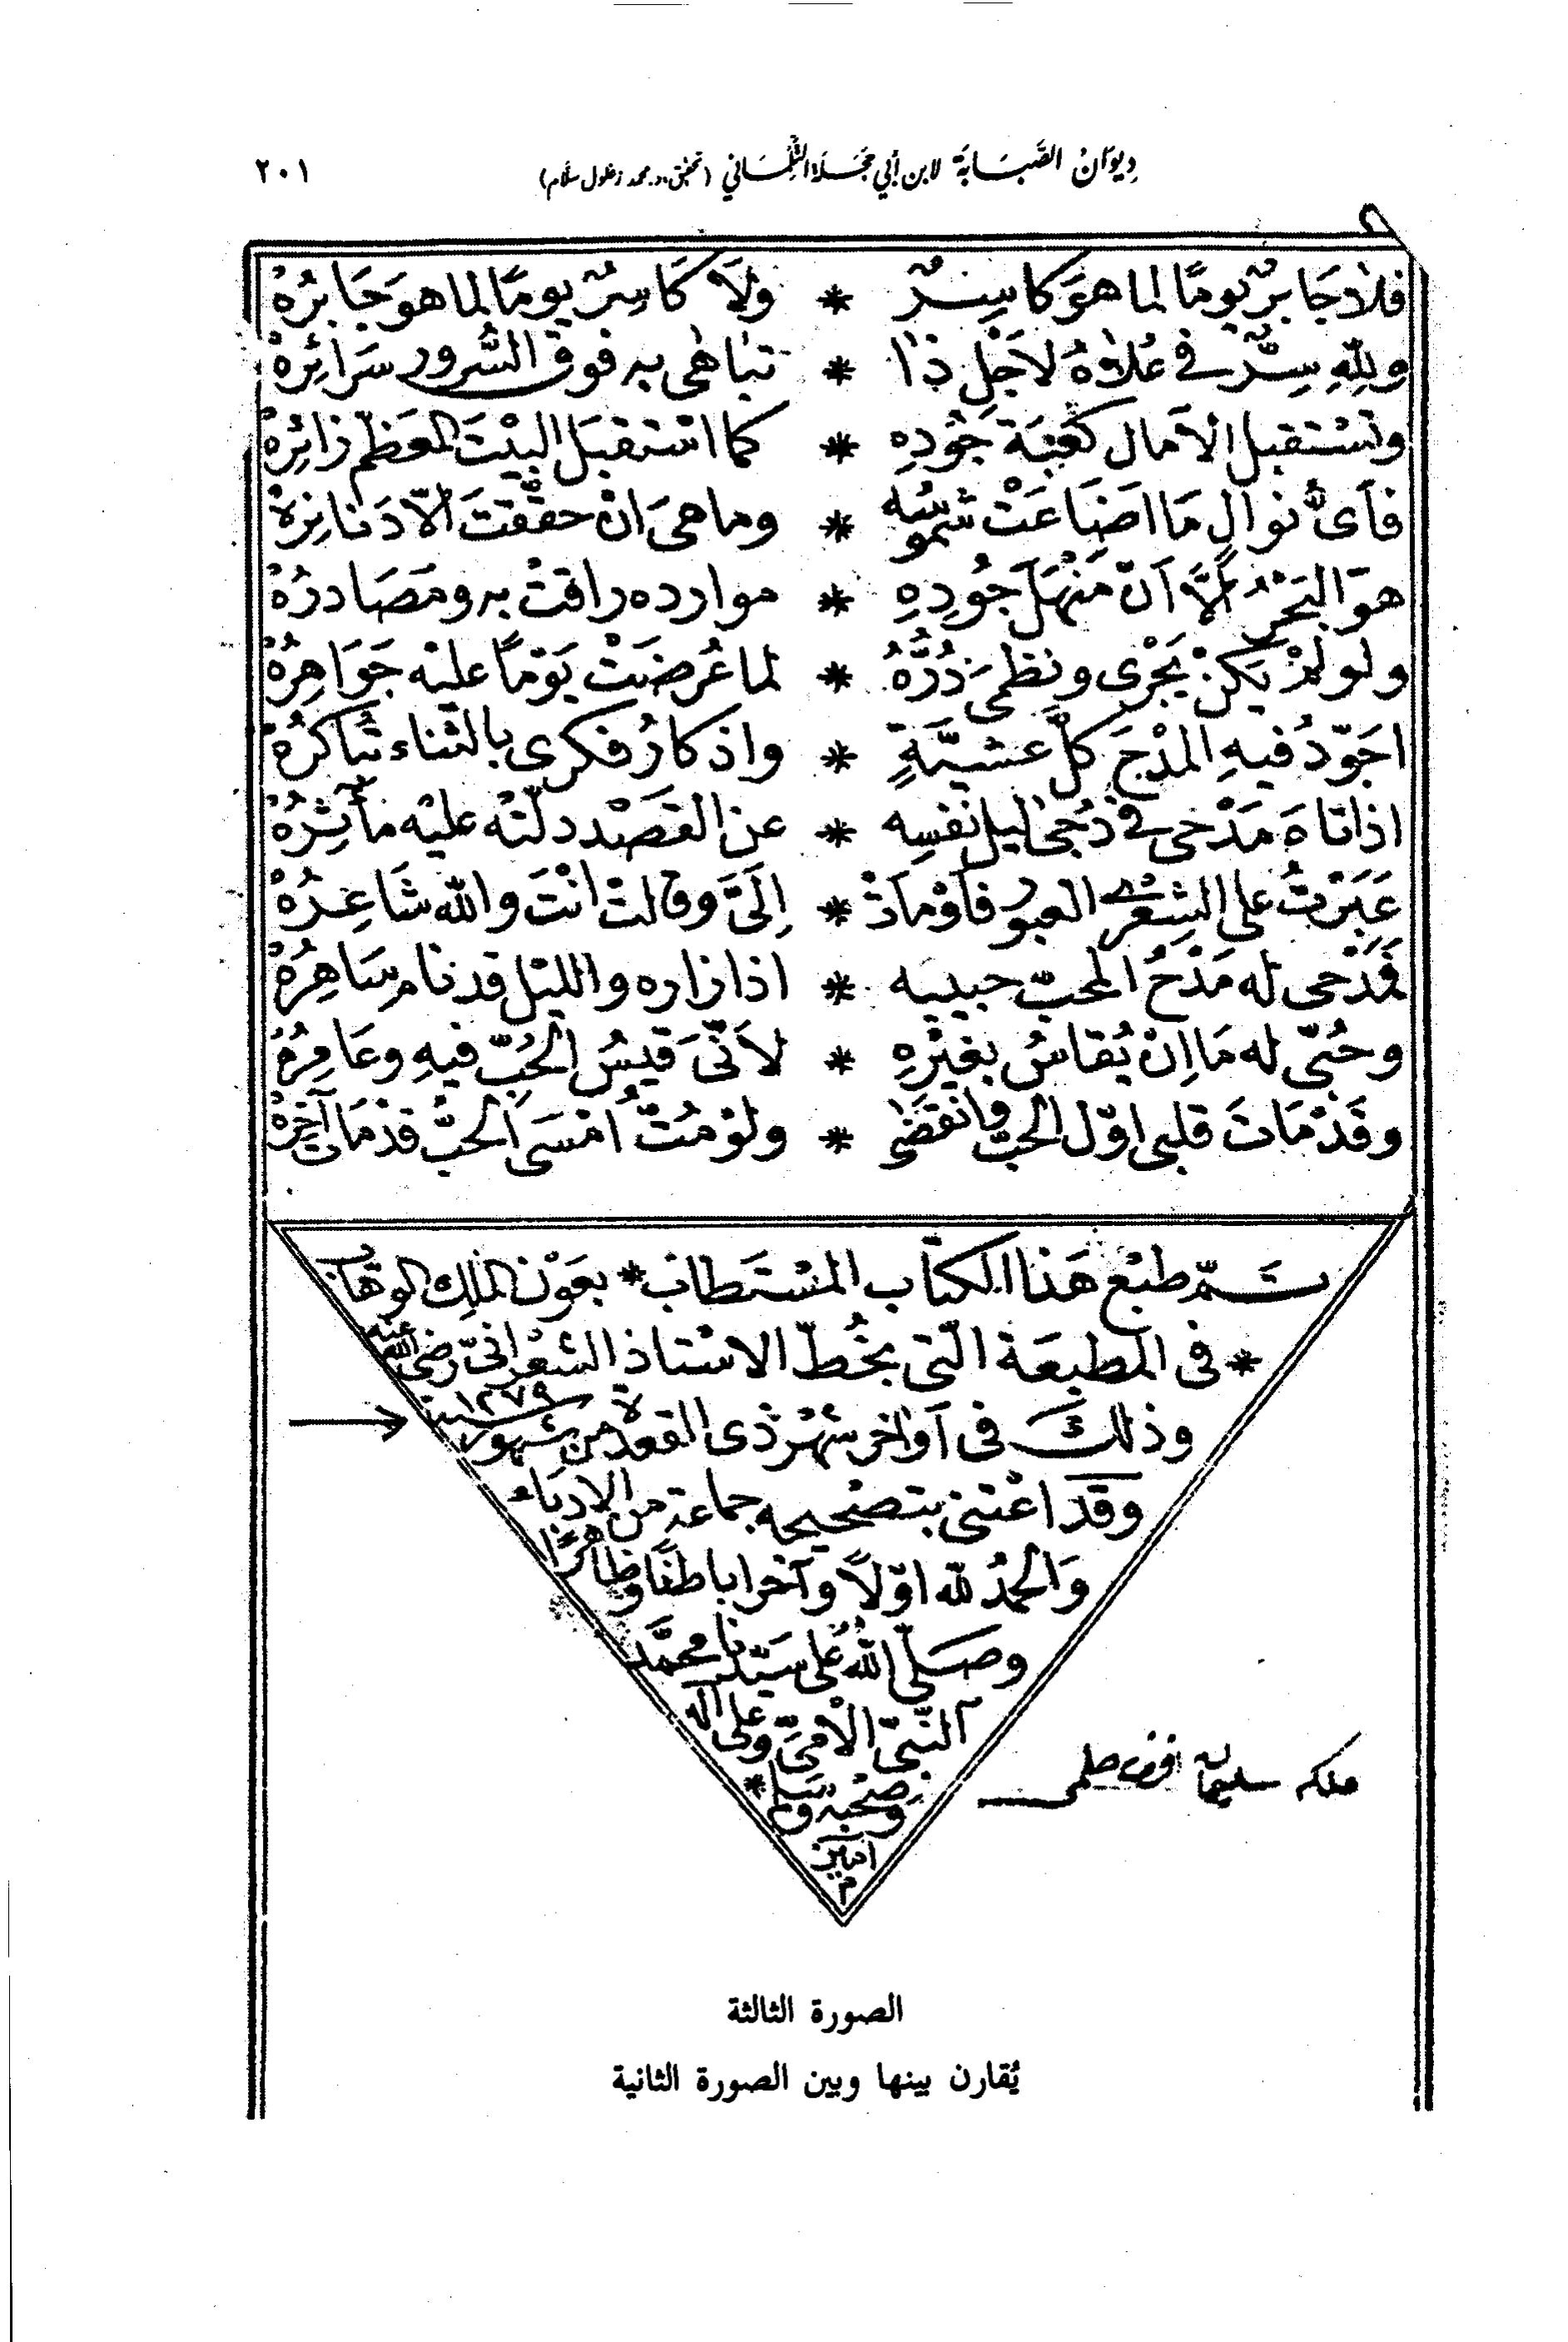 ديوَانُ الصَّبَابَة لابن أبي حَجَلَة التِّلِمسَاني (تحقيق د. محمد زغلول سلام) ٢٠١
فلا جَابرٌ يومًا لما هوَ كاسِرٌ * ولَا كَاسِرٌ يومًا لما هوَ جَابرُهْ
وللّهِ سِرٌّ فى عُلاهُ لاَجْلِ ذا * تباهٰى به فوق السُّرور سَرَائِرُهْ
وتستقبل الآمال كعْبَة جُودِهِ * كما اسْتقبَل البيْتَ المعَظّم زائِرُهْ
فأىُّ نوالٍ مَا اضَاعَتْ شمُوسُه * وما هىَ انْ حقّقتَ الّا دَنانِرُهْ
هوَ البَحْرُ الَّا اَنّ مَنْهَلَ جُودِهِ * موارده راقتْ به ومَصَادرُهْ
ولو لمْ يَكنْ يَجْرى ونظمىَ دُرُّهُ * لما عُرضَتْ يَوْمًا عليْه جَوَاهِرُهْ
اجَوّدُ فيهِ المدْحَ كلّ عشيَّةٍ * واذكارُ فكرى بالثناء تُباكرُهْ
اذا تاهَ مَدْحى فى دُجىٰ ليل نفسِه * عن القَصْد دلّتْه عليْه مآثِرُهْ
عَبَرْتُ على الشِعْرٰى العبور فاَوْمأتْ * اِلَىَّ وقالت انْتَ واللّه شَاعِرُهْ
فمَدْحى له مَدْحُ المحبّ حبيبه * اذا زاره والليْل قد نام سَاهِرُهْ
وحُبّى له مَا اِنْ يُقاسُ بغيْرِهِ * لاَنّىَ قيسُ الحُبّ فيهِ وعَامِرُهْ
وقَدْ مَاتَ قلبى اوّل الحبّ وانقضٰى * ولوْ مُتُّ امْسَى الحبّ قدْ مَاتَ آخِرُهْ
تَمّ طبْع هَذا الكتاب المسْتَطاب * بعَوْن الملِك الوَهّاب
* فى المطبعَة الّتى بخُطّ الاسْتاذ الشعْرانىّ رضى اللّه عنه
وذلكَ فى اَواخر شهْر ذى القعدة من شهور سنة ١٢٧٩
وقَد اعْتنى بتصْحيحه جماعة من الادبَاء
وَالحمْدُ للّه اوّلاً وآخرا باطنًا وظاهرًا
وصَلّى اللّهُ على سَيّدنا محمَّد
النّبىّ الاُمّىّ وعلى اله
وصحْبه وسَلم *
امين
م
ملكه سليمان افندى حلمى
الصورة الثالثة
يُقارن بينها وبين الصورة الثانية